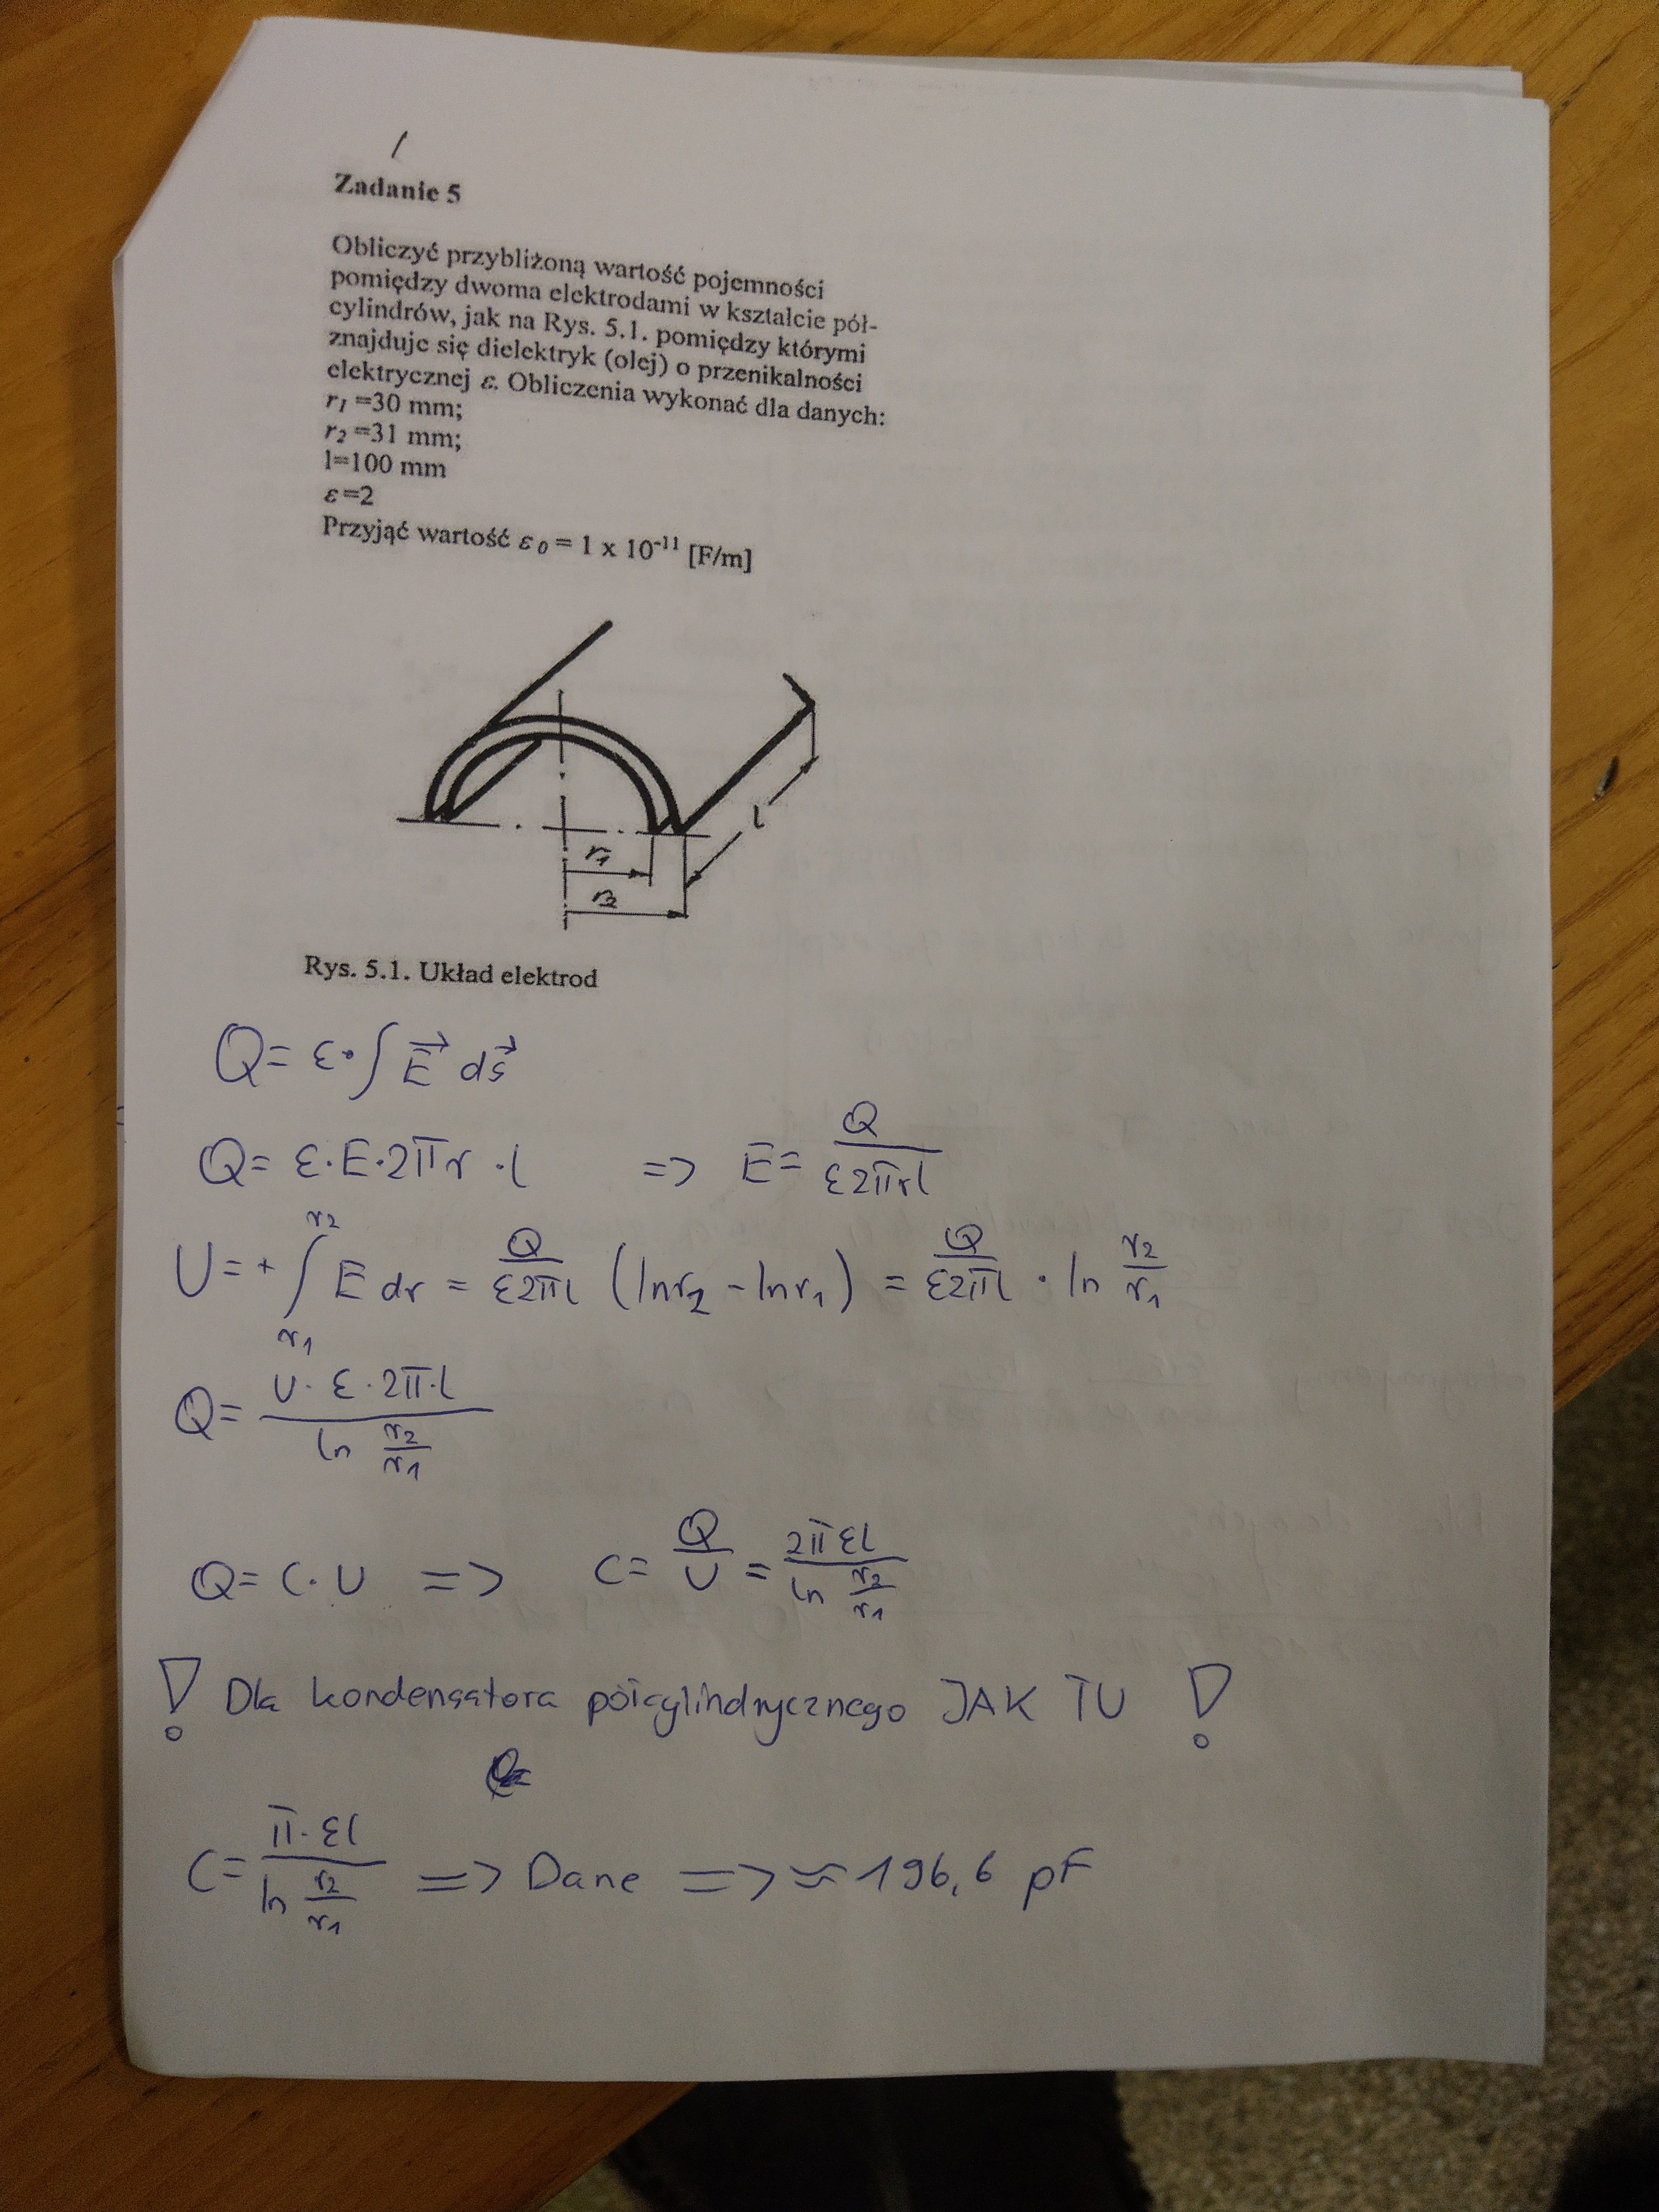 Zadanie 5
Obliczyć przybliżoną wartość pojemności
pomiędzy dwoma elektrodami w kształcie pół-
cylindrów, jak na Rys. 5.1. pomiędzy którymi
znajduje się dielektryk (olej) o przenikalności
elektrycznej ε. Obliczenia wykonać dla danych:
r₁ =30 mm;
r₂ =31 mm;
l=100 mm
ε=2
Przyjąć wartość ε₀ = 1 x 10⁻¹¹ [F/m]
l
r₁
r₂
Rys. 5.1. Układ elektrod
Q= ε·∫ E⃗ ds⃗
Q= ε·E·2πr·l => E= Q/(ε2πrl)
U=+ ∫_{r1}^{r2} E dr = Q/(ε2πl) (lnr₂ - lnr₁) = Q/(ε2πl) · ln r2/r1
Q= (U·ε·2π·l)/(ln r2/r1)
Q= C·U => C= Q/U = (2πεl)/(ln r2/r1)
! Dla kondensatora półcylindrycznego JAK TU !
C= (π·εl)/(ln r2/r1) => Dane => ≈ 196,6 pF